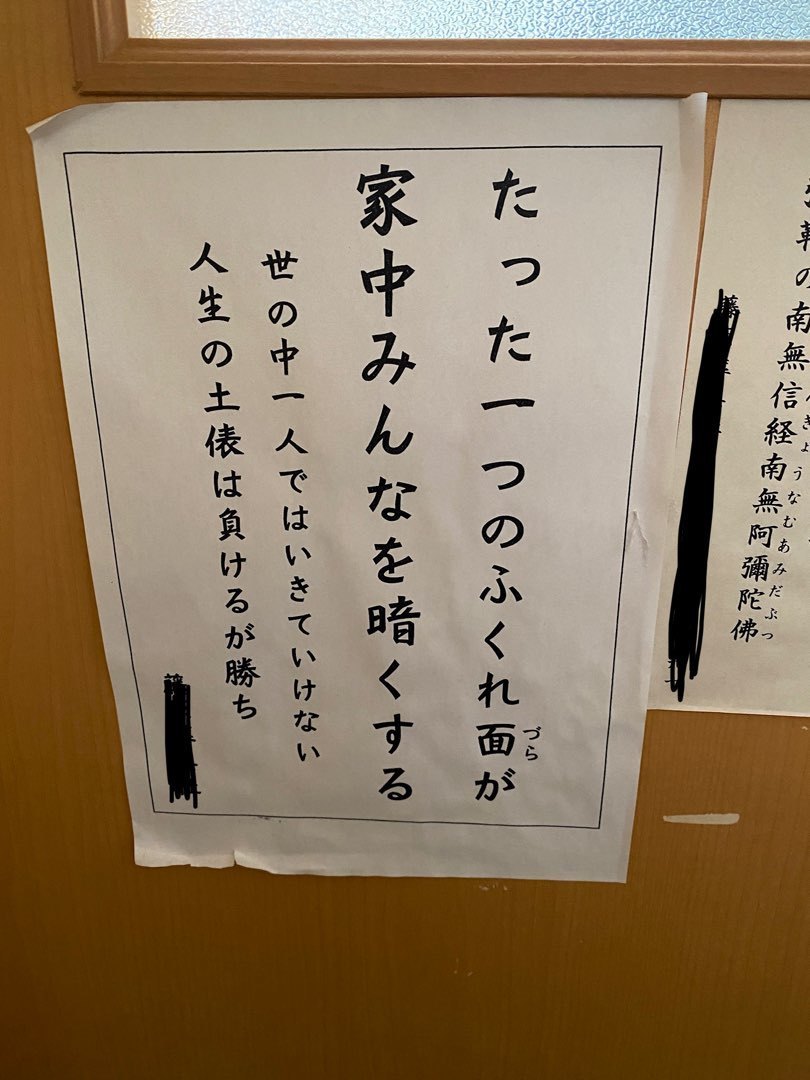 たった一つのふくれ面が
づら
家中みんなを暗くする
世の中一人ではいきていけない
人生の土俵は負けるが勝ち
の南無信経南無阿彌陀佛
きょうなむあみだぶつ